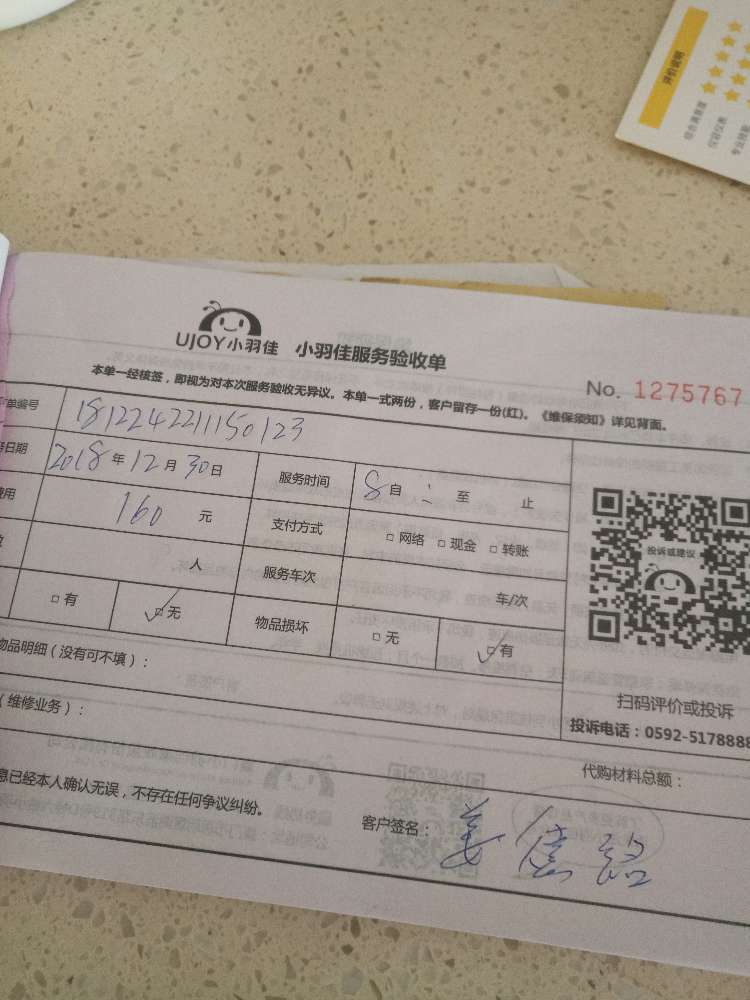 评价说明
综合满意度
仪容仪表
UJOY小羽佳 小羽佳服务验收单
No. 1275767
本单一经核签，即视为对本次服务验收无异议。本单一式两份，客户留存一份(红)。《维保须知》详见背面。
单编号 1812242211150123
日期 2018年12月30日 服务时间 8自 至 止
费用 160 元 支付方式 □网络 □现金 □转账
人 服务车次 车/次
□有 ☑无 物品损坏 □无 ☑有
投诉或建议
物品明细（没有可不填）：
扫码评价或投诉
（维修业务）：
投诉电话：0592-5178888
代购材料总额：
息已经本人确认无误，不存在任何争议纠纷。
客户签名：姜德